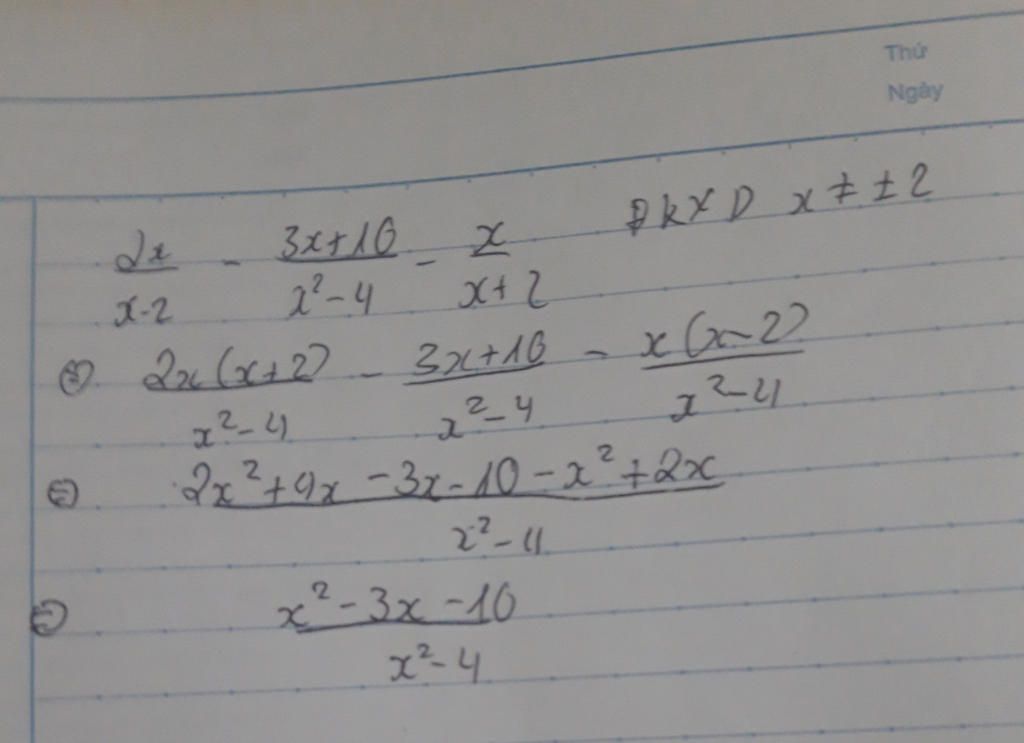 Thứ
Ngày
2x/(x-2) - (3x+10)/(x²-4) - x/(x+2) ĐKXD x ≠ ±2
(=) 2x(x+2)/(x²-4) - (3x+10)/(x²-4) - x(x-2)/(x²-4)
(=) (2x²+4x-3x-10-x²+2x)/(x²-4)
(=) (x²-3x-10)/(x²-4)